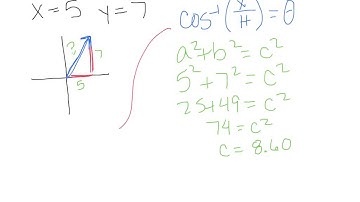 x=5 y=7
?
7
5
cos⁻¹(x/H)=θ
a²+b²=c²
5²+7²=c²
25+49=c²
74=c²
c=8.60